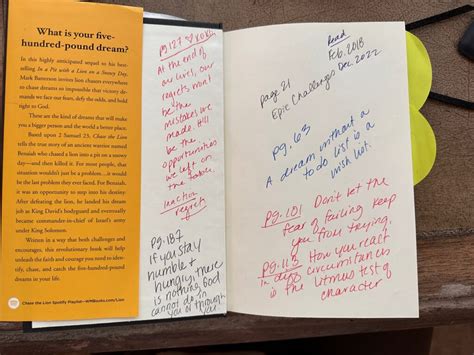 What is your five-
hundred-pound dream?
In this highly anticipated sequel to his best-
selling In a Pit with a Lion on a Snowy Day,
Mark Batterson invites everyone to chase
dreams so impossible that victory de-
mands we face our fears, defy the odds, and hold
tight to God.
These are the kind of dreams that will make
you a bigger person and the world a better place.
Based upon 2 Samuel 23, Chase the Lion
tells the true story of an ancient warrior named
Benaiah who chased a lion into a pit on a snowy
day—and then killed it. For most people, that
situation wouldn't just be a problem...it would
be the last problem they ever faced. For Benaiah,
it was an opportunity to step into his destiny.
After defeating the lion, he landed his dream
job as King David's bodyguard and eventually
became commander-in-chief of Israel's army
under King Solomon.
Written in a way that both challenges and
encourages, this revolutionary book will help
unleash the faith and courage you need to identify,
chase, and catch the five-hundred-pound
dreams in your life.
Chase the Lion Spotify Playlist—WMBooks.com/Lion
pg. 127
At the end of
our lives, our
regrets won't
be the
mistakes we
made. It'll
be the
opportunities
we left on
the table.
Inaction
regrets
Pg. 187
If you stay
humble &
hungry, there
is nothing God
cannot do in
you or through
you
Read
Feb. 2018
Dec. 2022
page 21
Epic Challenges
pg. 63
A dream without a
to do list is a
wish list.
Pg. 101 Don't let the
fear of failing keep
you from trying.
Pg. 113 How you react
in circumstances
is the litmus test of
character